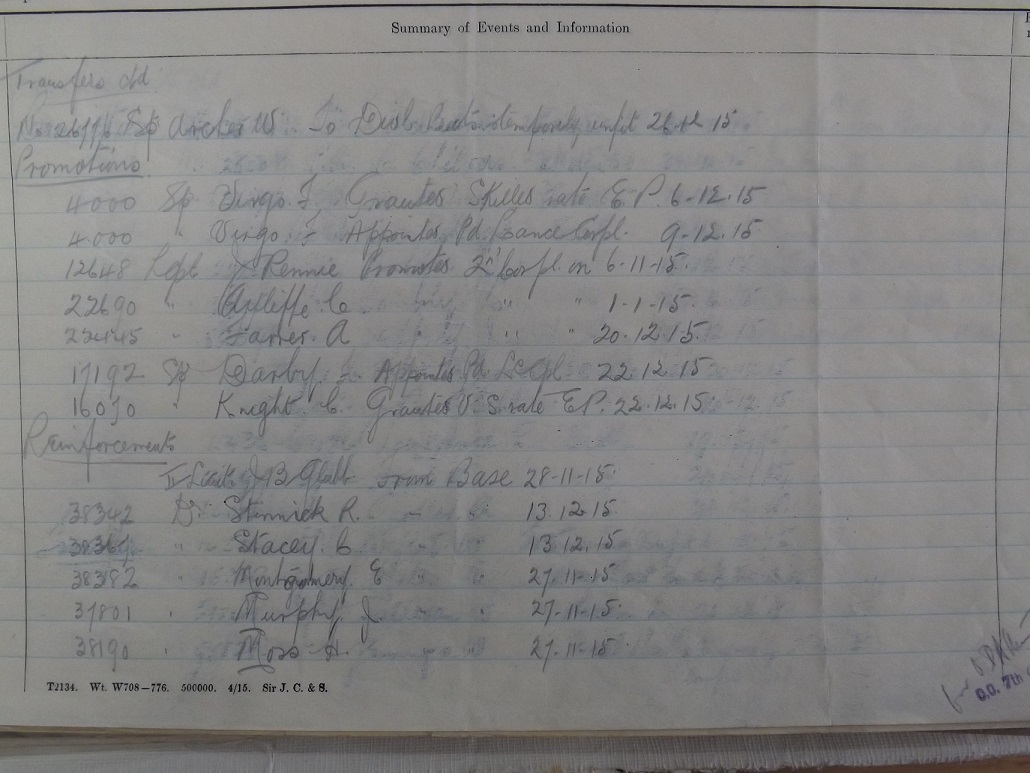 Summary of Events and Information
Transfers ctd
No 26776 Sp Archer W. To Distr. temporarily unfit 26.12.15
Promotions
4000 Sp Virgo. F. Granted Skilled rate E.P. 6-12.15
4000 " Virgo. F. Appointed Pd Lance Corpl. 9-12.15
12648 Lcpl J Rennie Promoted 2nd Corpl on 6-11-15.
22690 " C. " " 1-1-15.
" A " " 20.12.15.
17192 Sp Darby. Appointed Pd Lc Cpl. 22.12.15
" Knight C. Granted V.S. rate E.P. 22.12.15
Reinforcements
II Lieut J B from Base 28-11-15.
38342 Dr. Stinnick R. " " 13.12.15
" Stacey. C. 13.12.15
38382 " Montgomery. E " " 27-11-15
37801 " Murphy. J " " 27-11-15.
38190 " Moss H. " 27.11-15
T2134. Wt. W708—776. 500000. 4/15. Sir J. C. & S.
O.O. 7th